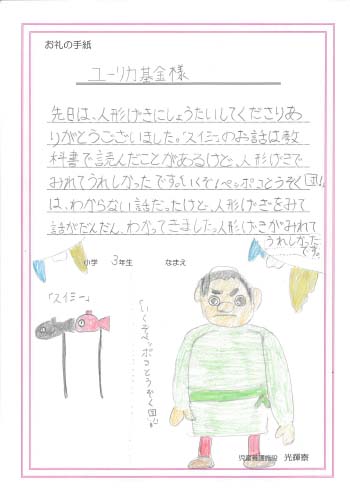 お礼の手紙
ユーリカ基金様
先日は、人形げきにしょうたいしてくださりあ
りがとうございました。「スイミー」のお話は教
科書で読んだことがあるけど、人形げきで
みれてうれしかったです。「いくぞ!ペッポコとうぞく団!」
は、わからない話だったけど、人形げきをみて
話がだんだん、わかってきました。人形げきがみれて
うれしかった
です。
小学 3年生 なまえ
「スイミー」
「いくぞペッポコとうぞく団!」
児童養護施設 光輝寮